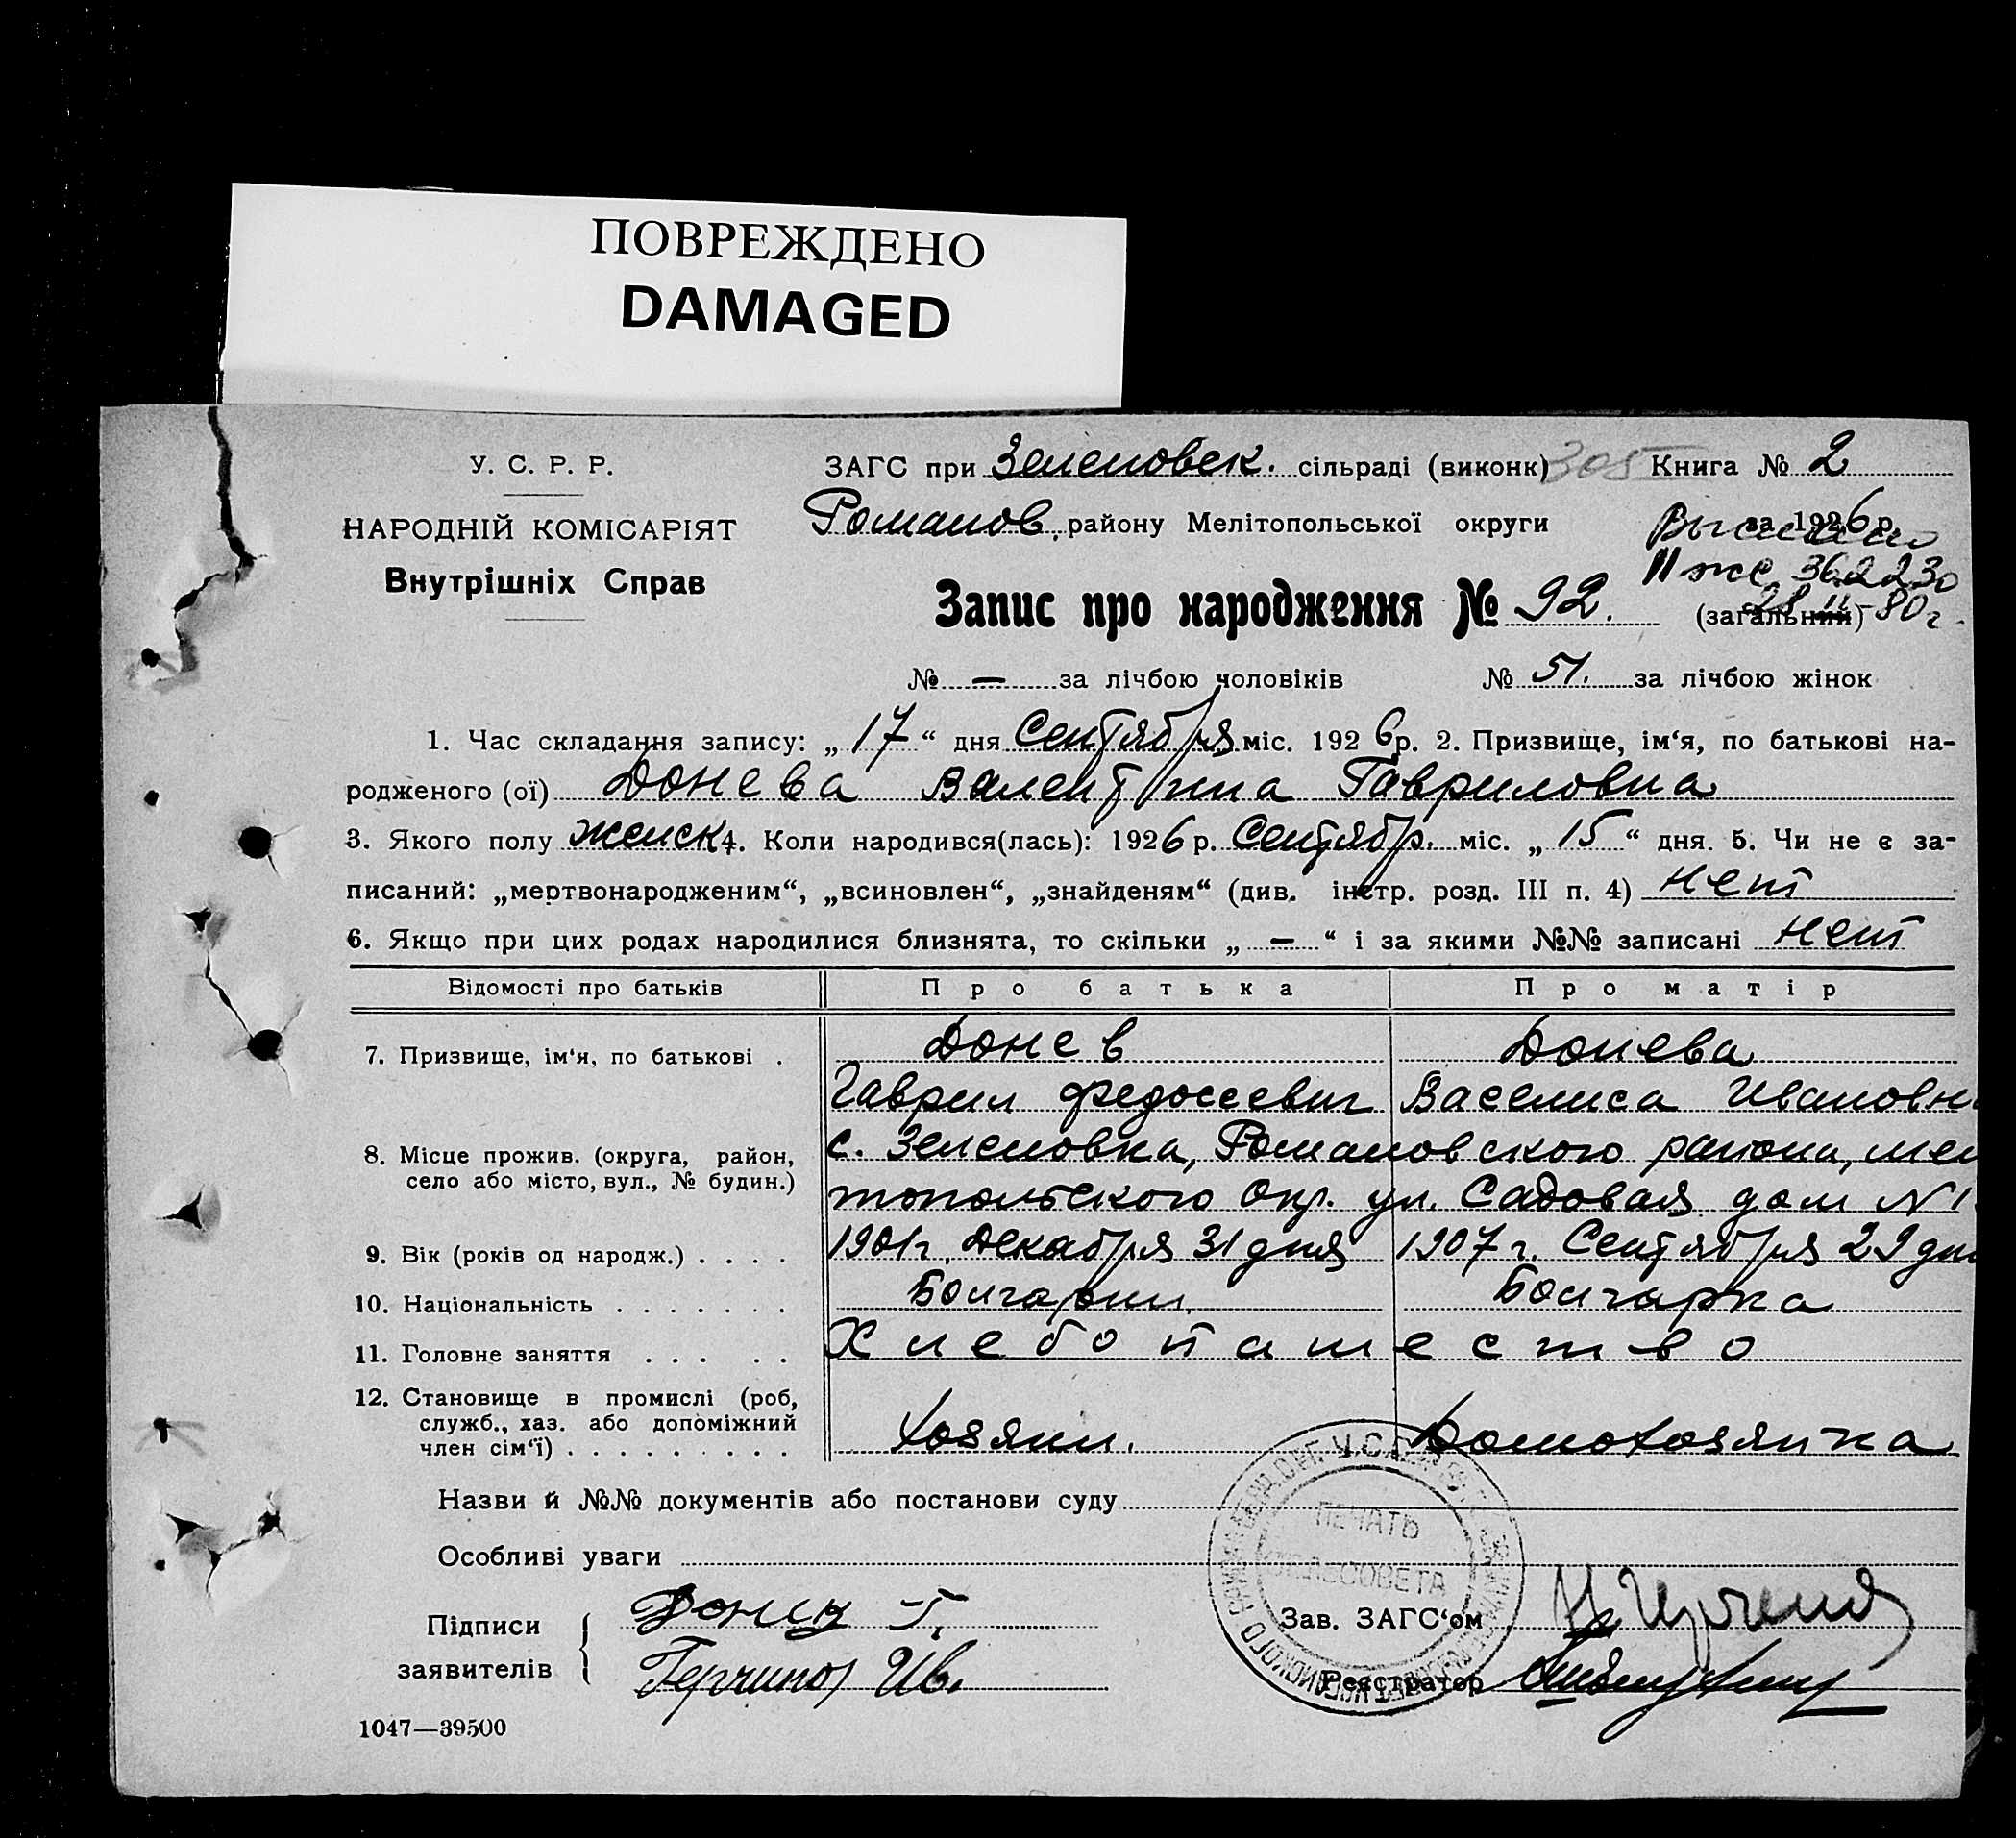 ПОВРЕЖДЕНО
DAMAGED
У. С. Р. Р.
НАРОДНІЙ КОМІСАРІЯТ
Внутрішніх Справ
ЗАГС при Зеленовск. сільраді (виконк) 305 Книга № 2
Романов. району Мелітопольської округи за 1926 р.
Выписано
II жс 362230
28 II-80 г.
Запис про народження № 92. (загальний)
№ — за лічбою чоловіків № 51. за лічбою жінок
1. Час складання запису: „17“ дня Сентября міс. 1926 р. 2. Призвище, ім‘я, по батькові на-
родженого (ої) Донева Валентина Гавриловна
3. Якого полу женск 4. Коли народився(лась): 1926 р. Сентябр. міс. „15“ дня. 5. Чи не є за-
писаний: „мертвонародженим“, „всиновлен“, „знайденям“ (див. інстр. розд. III п. 4) нет
6. Якщо при цих родах народилися близнята, то скільки „—“ і за якими №№ записані нет
Відомості про батьків Про батька Про матір
7. Призвище, ім‘я, по батькові . Донев Донева
Гаврил Федосеевич Васелиса Ивановн
8. Місце прожив. (округа, район, с. Зеленовка, Романовского района, мел
село або місто, вул., № будин.) топольского Окр. ул. Садовая дом №1
9. Вік (років од народж.) . . . . 1901 г. Декабря 31 дня 1907 г. Сентября 29 дн
10. Національність . . . . . . . Болгарин. Болгарка
11. Головне заняття . . . . . Хлебопашество
12. Становище в промислі (роб,
служб., хаз. або допоміжний
член сім‘ї) . . . . . . . . . Хозяин. Домохозяйка
Назви й №№ документів або постанови суду
Особливі уваги
ПЕЧАТЬ
СЕЛЬСОВЕТА
Підписи Г.
заявителів Ив.
Зав. ЗАГС‘ом
Реєстратор
1047—39500